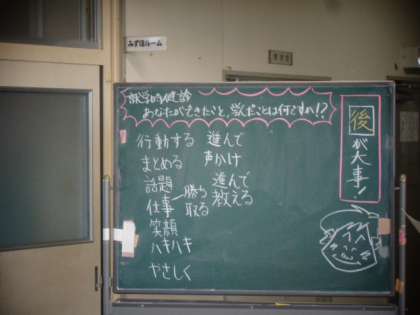 みずほルーム
就学時健診
あなたができたこと、学んだことは何ですか!?
後が大事!
行動する
まとめる
話題
仕事
勝ち取る
笑顔
ハキハキ
やさしく
進んで
声かけ
進んで
教える